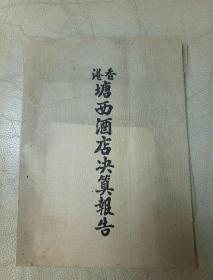 香港
塘西酒店决算報告